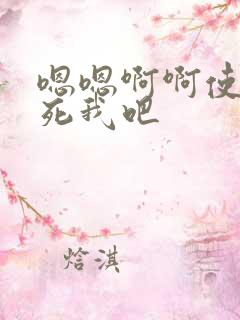 嗯嗯啊啊使
死我吧
焓淇